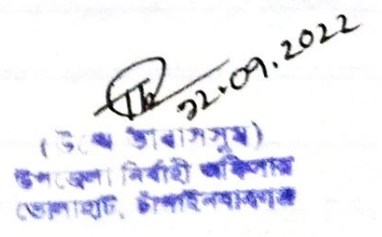 22.09.2022
(উম্মে তাবাসসুম)
উপজেলা নির্বাহী অফিসার
ভোলাহাট, চাঁপাইনবাবগঞ্জ